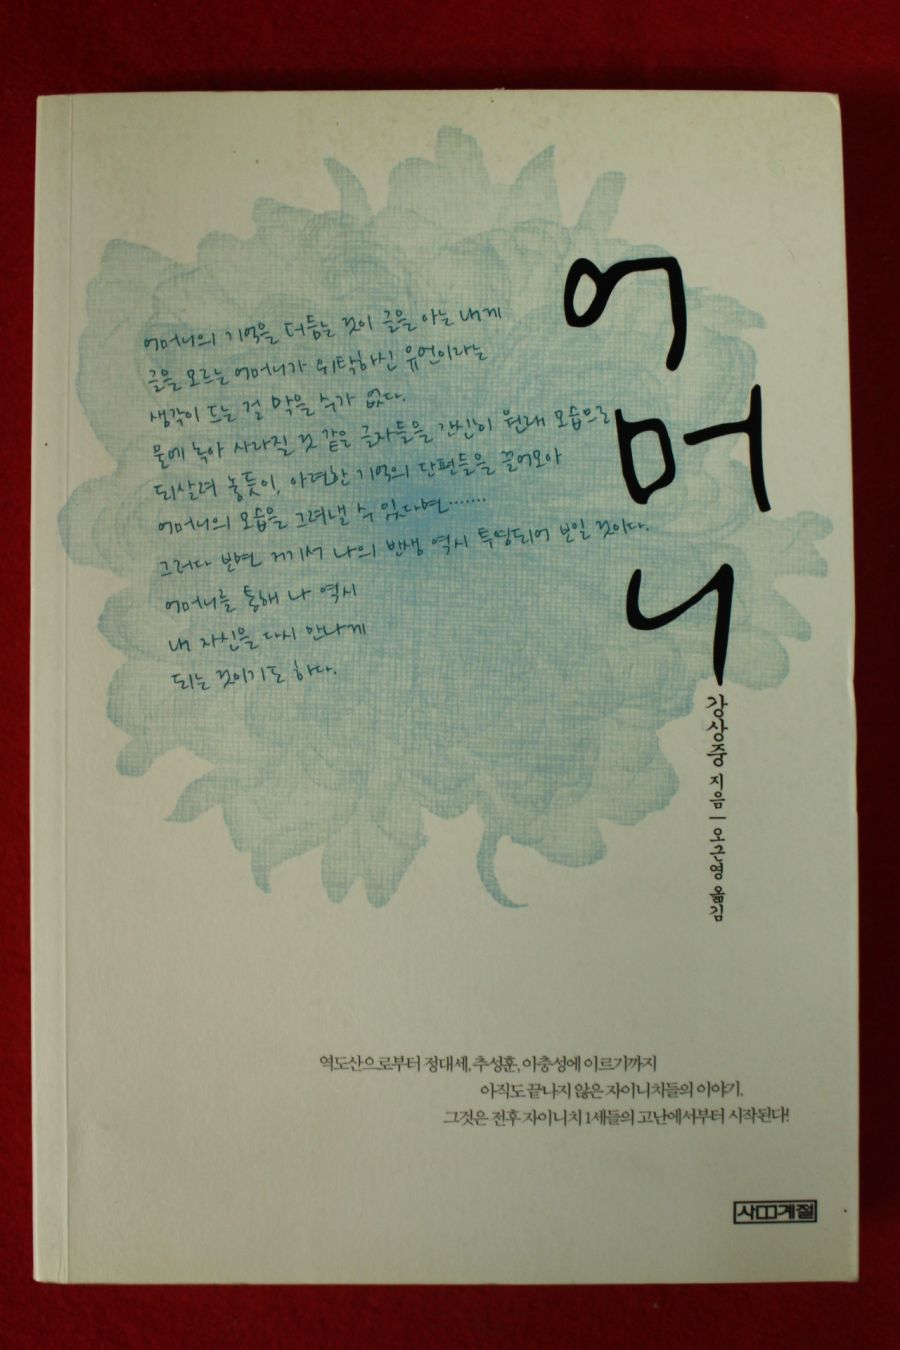 어머니
강상중 지음 | 오근영 옮김
어머니의 기억을 더듬는 것이 글을 아는 내게
글을 모르는 어머니가 위탁하신 유언이라는
생각이 드는 걸 막을 수가 없다.
물에 녹아 사라질 것 같은 글자들을 간신히 원래 모습으로
되살려 놓듯이, 아련한 기억의 단편들을 끌어모아
어머니의 모습을 그려낼 수 있다면.......
그러다 보면 거기서 나의 반생 역시 투영되어 보일 것이다.
어머니를 통해 나 역시
내 자신을 다시 만나게
되는 것이기도 하다.
역도산으로부터 정대세, 추성훈, 이충성에 이르기까지
아직도 끝나지 않은 자이니치들의 이야기.
그것은 전후 자이니치 1세들의 고난에서부터 시작된다!
사계절